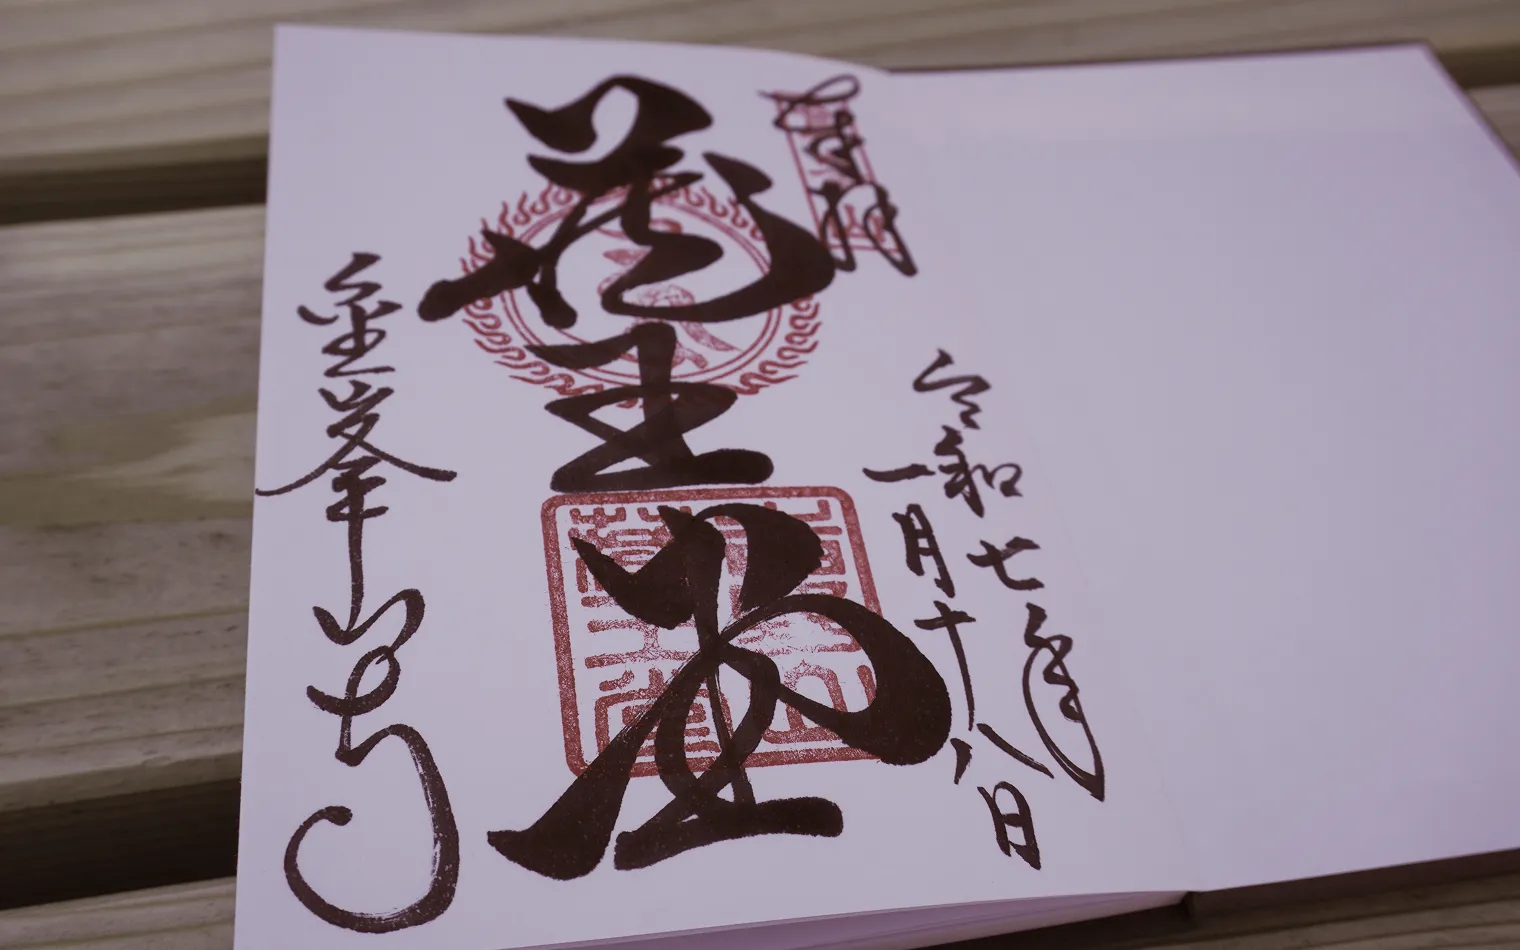 奉拝
令和七年
一月十八日
蔵王堂
金峯山寺